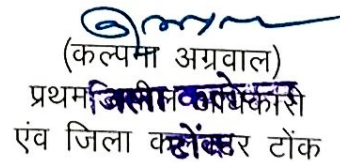 (कल्पना अग्रवाल)
प्रथम अपीलीय अधिकारी
एंव जिला कलेक्टर टोंक